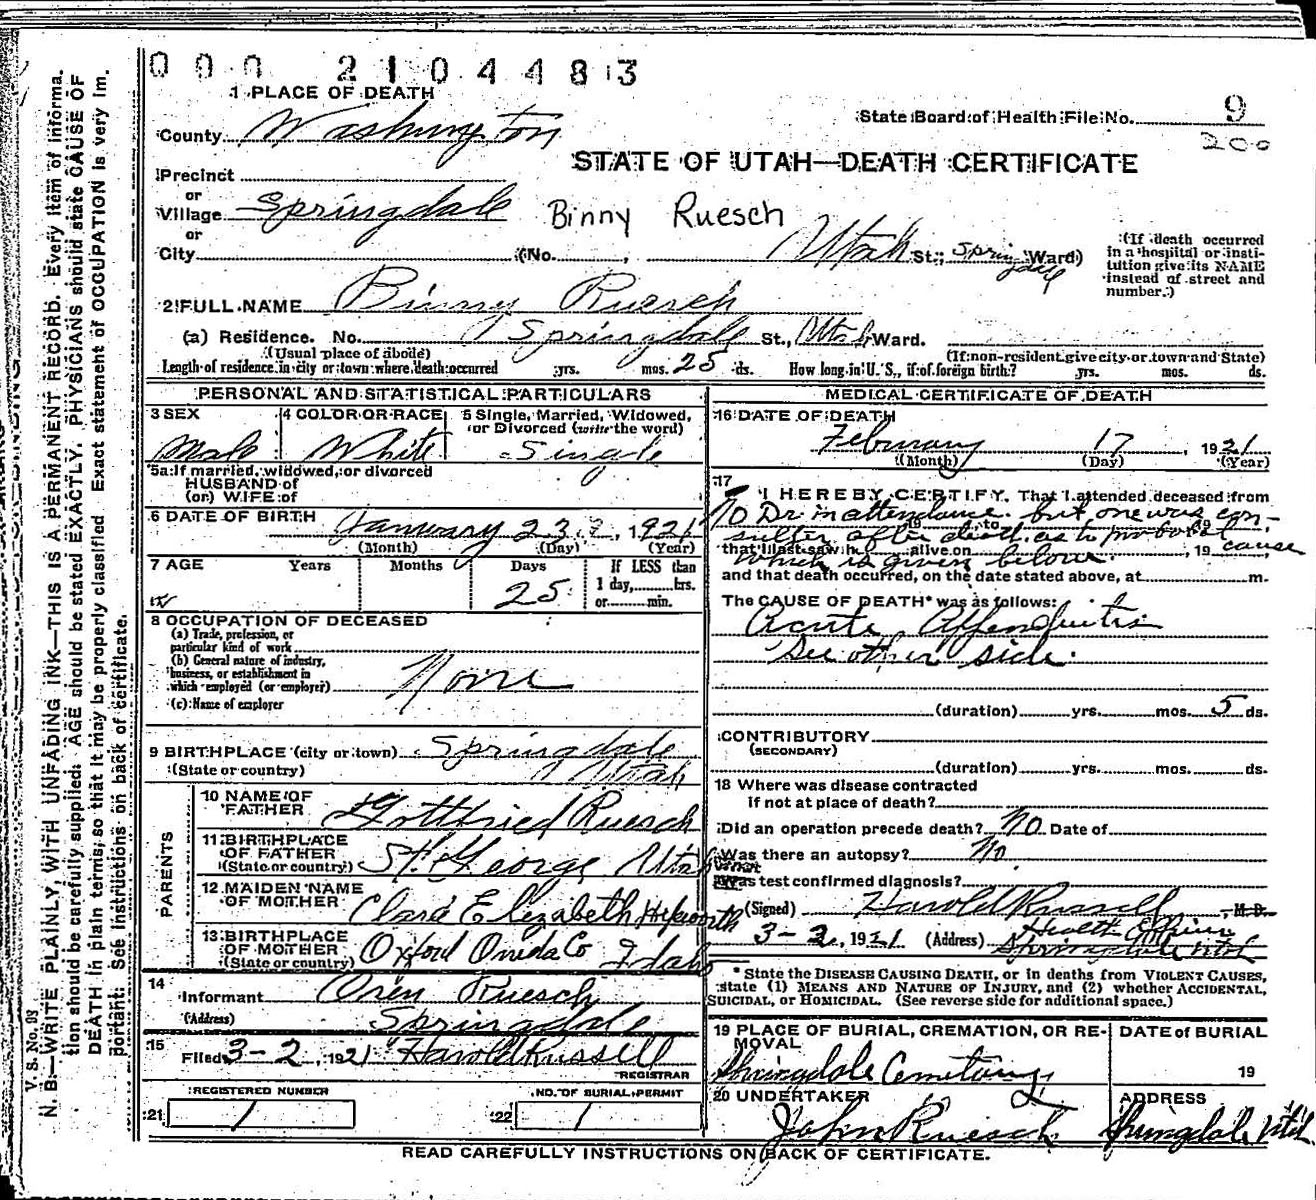 0 0 0 2 1 0 4 4 8 3
1 PLACE OF DEATH
State Board of Health File No. 9
200
County Washington
STATE OF UTAH—DEATH CERTIFICATE
Precinct
or
Village Springdale
Binny Ruesch
or
City (No. , Utah St.; Springdale Ward)
(If death occurred in a hospital or institution give its NAME instead of street and number.)
2 FULL NAME Binny Ruesch
(a) Residence. No. Springdale St., Utah Ward.
(Usual place of abode) (If non-resident give city or town and State)
Length of residence in city or town where death occurred yrs. mos. 25 ds. How long in U. S., if of foreign birth? yrs. mos. ds.
PERSONAL AND STATISTICAL PARTICULARS
3 SEX
Male
4 COLOR OR RACE
White
5 Single, Married, Widowed, or Divorced (write the word)
Single
5a If married, widowed, or divorced
HUSBAND of
(or) WIFE of
6 DATE OF BIRTH January 23, 1921
(Month) (Day) (Year)
7 AGE Years Months Days If LESS than
1 day, hrs.
25 or min.
8 OCCUPATION OF DECEASED
(a) Trade, profession, or
particular kind of work
(b) General nature of industry,
business, or establishment in
which employed (or employer) None
(c) Name of employer
9 BIRTHPLACE (city or town) Springdale
(State or country) Utah
PARENTS
10 NAME OF
FATHER Gottfried Ruesch
11 BIRTHPLACE
OF FATHER
(State or country) St. George Utah
12 MAIDEN NAME
OF MOTHER Clara Elizabeth Hepworth
13 BIRTHPLACE
OF MOTHER
(State or country) Oxford Oneida Co Idaho
14
Informant Oren Ruesch
(Address) Springdale
15
Filed 3-2, 1921 Harold Russell
REGISTRAR
REGISTERED NUMBER
21 1
NO. OF BURIAL PERMIT
22 1
MEDICAL CERTIFICATE OF DEATH
16 DATE OF DEATH
February 17, 1921
(Month) (Day) (Year)
17
I HEREBY CERTIFY, That I attended deceased from
No Dr. in attendance. but one was con-
19 to 19
sulted after death as to probable cause
that I last saw h alive on , 19
which is given below.
and that death occurred, on the date stated above, at m.
The CAUSE OF DEATH* was as follows:
Acute Appendicitis
See other side.
(duration) yrs. mos. 5 ds.
CONTRIBUTORY
(SECONDARY)
(duration) yrs. mos. ds.
18 Where was disease contracted
if not at place of death?
Did an operation precede death? No Date of
Was there an autopsy? No
What test confirmed diagnosis?
(Signed) Harold Russell, M.D.
3-2, 1921 (Address) Health Officer
Springdale Utah
* State the DISEASE CAUSING DEATH, or in deaths from VIOLENT CAUSES,
state (1) MEANS AND NATURE OF INJURY, and (2) whether ACCIDENTAL,
SUICIDAL, or HOMICIDAL. (See reverse side for additional space.)
19 PLACE OF BURIAL, CREMATION, OR RE-
MOVAL
Springdale Cemetary
DATE of BURIAL
19
20 UNDERTAKER
John Ruesch
ADDRESS
Springdale Utah
READ CAREFULLY INSTRUCTIONS ON BACK OF CERTIFICATE.
V. S. No. 93
N. B.—WRITE PLAINLY, WITH UNFADING INK—THIS IS A PERMANENT RECORD. Every item of informa-
tion should be carefully supplied. AGE should be stated EXACTLY. PHYSICIANS should state CAUSE OF
DEATH in plain terms, so that it may be properly classified. Exact statement of OCCUPATION is very im-
portant. See instructions on back of certificate.